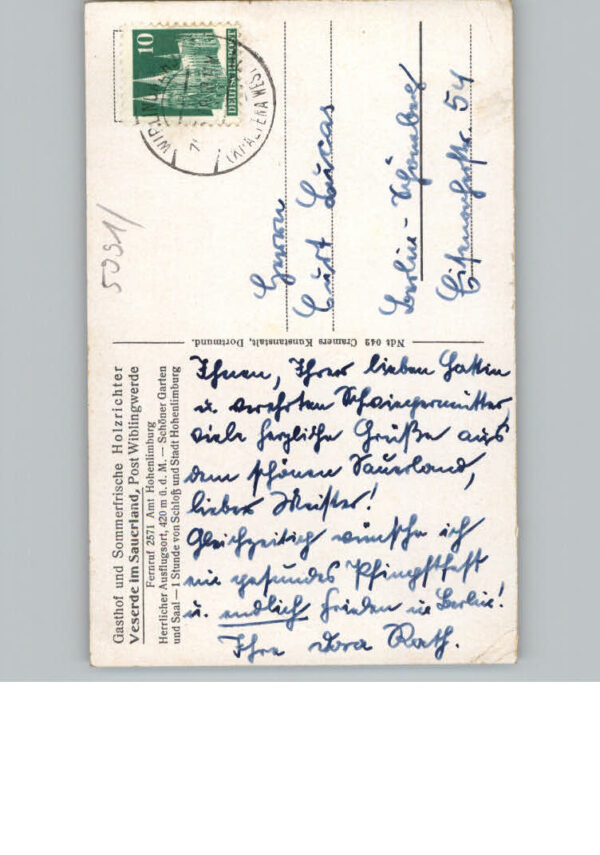 Gasthof und Sommerfrische Holzrichter
Veserde im Sauerland, Post Wiblingwerde
Fernruf 2571 Amt Hohenlimburg
Herrlicher Ausflugsort, 420 m ü. d. M. — Schöner Garten
und Saal — 1 Stunde von Schloß und Stadt Hohenlimburg
Ihnen, Ihrer lieben Gattin
u. verehrten Schwiegermutter,
viele herzliche Grüße aus
dem schönen Sauerland,
lieber Meister!
Gleichzeitig wünsche ich
ein gesundes Pfingstfest
u. endlich Frieden in Berlin!
Ihre Dora Rath.
Ndt 042 Cramers Kunstanstalt, Dortmund.
10
DEUTSCHE POST
(ALTENA WESTF
Herrn
Curt Lucas
Berlin-Schöneberg
Eisenacherstr. 54
5991/